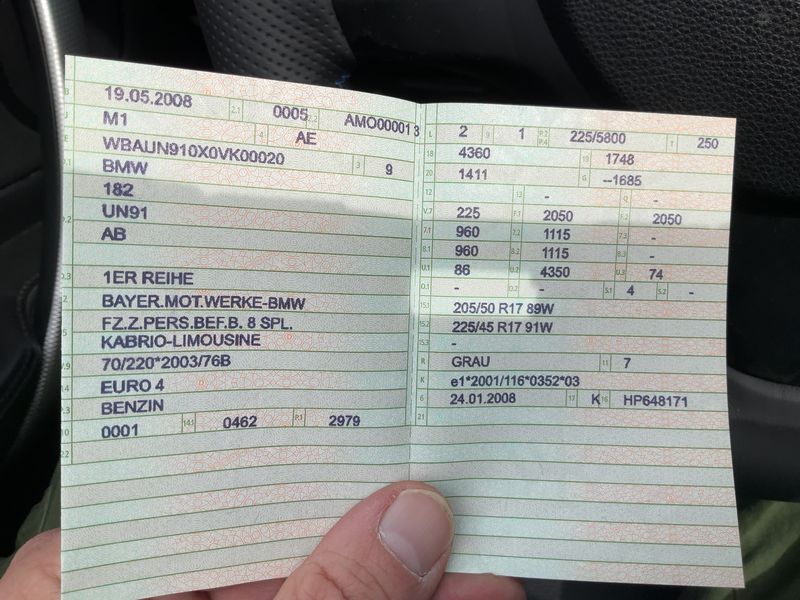 19.05.2008 2.1 0005 2.2 AMO00001 3
M1 4 AE
WBAUN910X0VK00020 3 9
BMW
182
UN91
AB
1ER REIHE
BAYER.MOT.WERKE-BMW
FZ.Z.PERS.BEF.B. 8 SPL.
KABRIO-LIMOUSINE
70/220*2003/76B
EURO 4
BENZIN
0001 14.1 0462 P.1 2979
22
L 2 9 1 P.2 P.4 225/5800 T 250
18 4360 19 1748
20 1411 G --1685
12 - 13 - Q -
V.7 225 F.1 2050 F.2 2050
7.1 960 7.2 1115 7.3 -
8.1 960 8.2 1115 8.3 -
U.1 86 U.2 4350 U.3 74
O.1 - O.2 - S.1 4 S.2 -
15.1 205/50 R17 89W
15.2 225/45 R17 91W
15.3 -
R GRAU 11 7
K e1*2001/116*0352*03
6 24.01.2008 17 K 16 HP648171
21